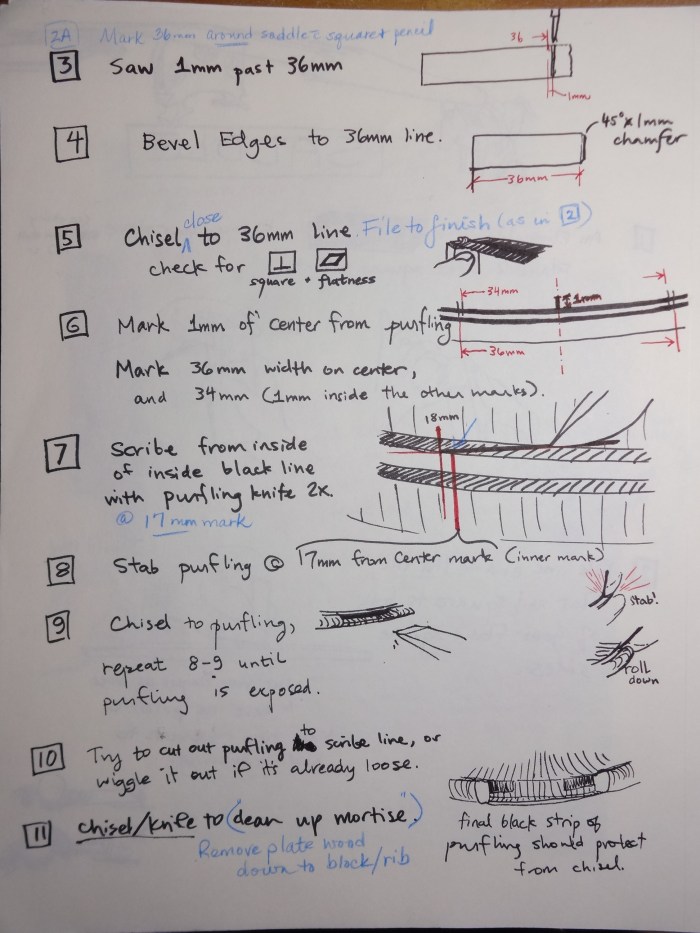 2A Mark 36mm around saddle c̄ square + pencil
3 Saw 1mm past 36mm
36
1mm
4 Bevel Edges to 36mm line.
45° x 1mm chamfer
36mm
5 Chisel close to 36mm line. File to finish (as in 2)
check for
square + flatness
34mm
1mm
6 Mark 1mm of center from purfling
36mm
Mark 36mm width on center,
and 34mm (1mm inside the other marks).
18mm
7 Scribe from inside
of inside black line
with purfling knife 2x.
@ 17mm mark
8 Stab purfling @ 17mm from center mark (inner mark)
stab!
9 Chisel to purfling,
repeat 8-9 until
purfling is exposed.
roll
down
10 Try to cut out purfling to scribe line, or
wiggle it out if it's already loose.
11 chisel/knife to (clean up mortise.")
Remove plate wood
down to block/rib
final black strip of
purfling should protect
from chisel.